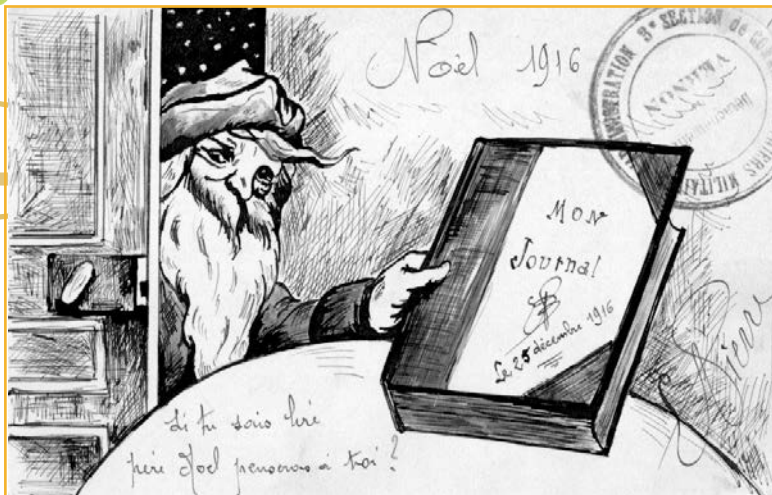 Noël 1916
ADMINISTRATION 3e SECTION de
MILITAI
MON
Journal
Le 25 décembre 1916
si tu sais lire
père Noel penserons à toi ?